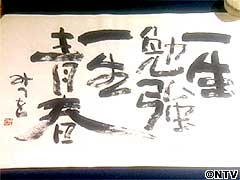 一生
勉強
一生
青春
みつを
©NTV